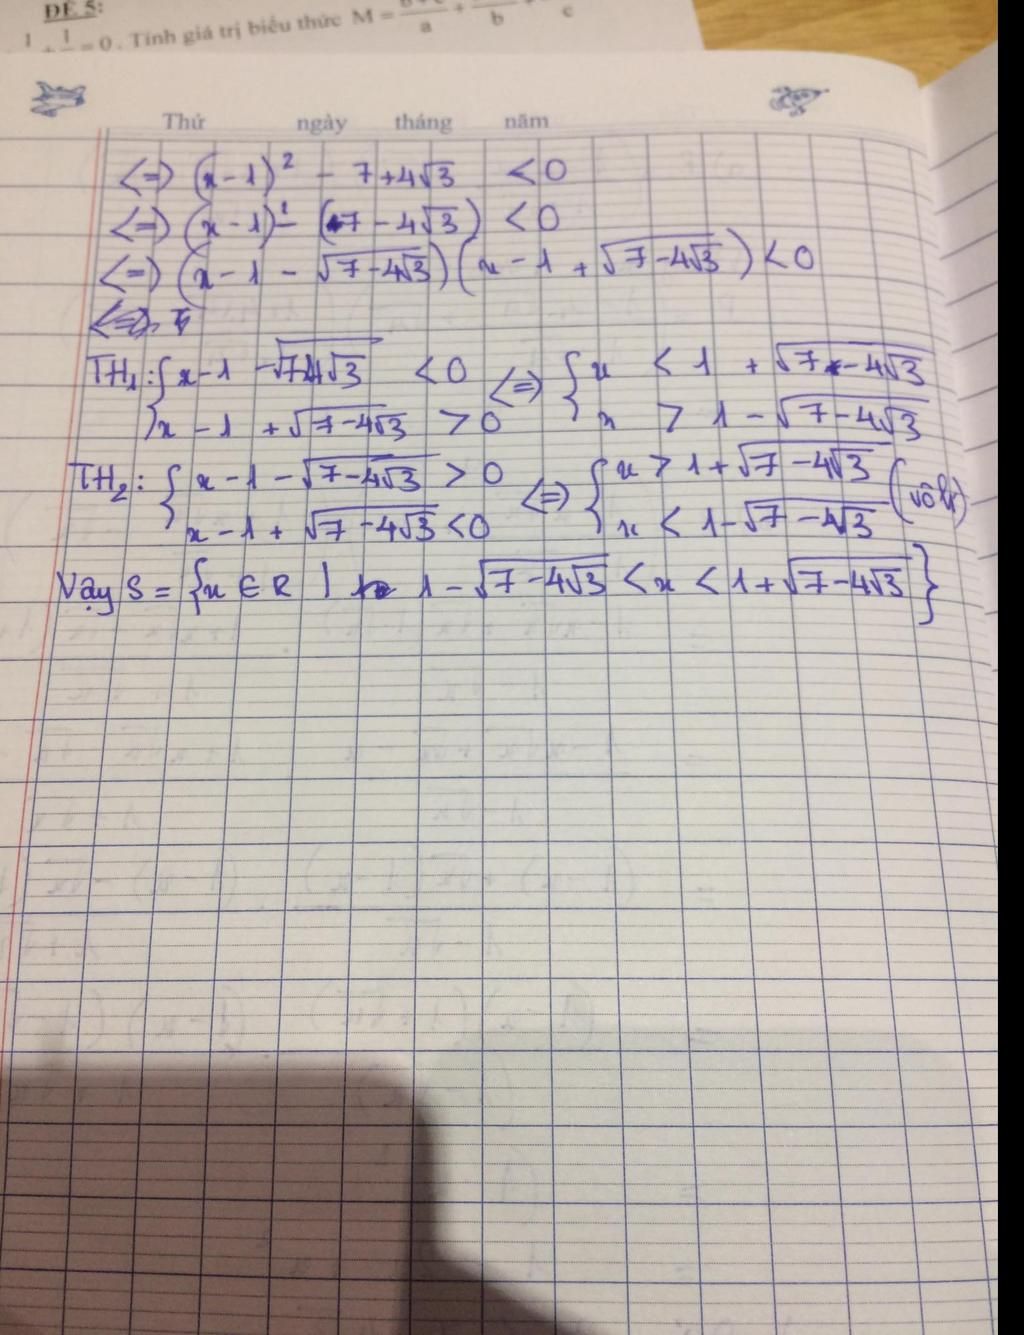 ĐỀ 5:
1/ + 1/ = 0. Tính giá trị biểu thức M = /a + /b + /c
Thứ ngày tháng năm
<=> (x-1)² - 7+4√3 < 0
<=> (x-1)² - (7-4√3) < 0
<=> (x-1-√(7-4√3))(x-1+√(7-4√3)) < 0
TH₁: { x-1-√(7-4√3) < 0 <=> { x < 1+√(7-4√3)
x-1+√(7-4√3) > 0 x > 1-√(7-4√3)
TH₂: { x-1-√(7-4√3) > 0 <=> { x > 1+√(7-4√3) (vô lý)
x-1+√(7-4√3) < 0 x < 1-√(7-4√3)
Vậy S = {x ∈ R | 1-√(7-4√3) < x < 1+√(7-4√3)}